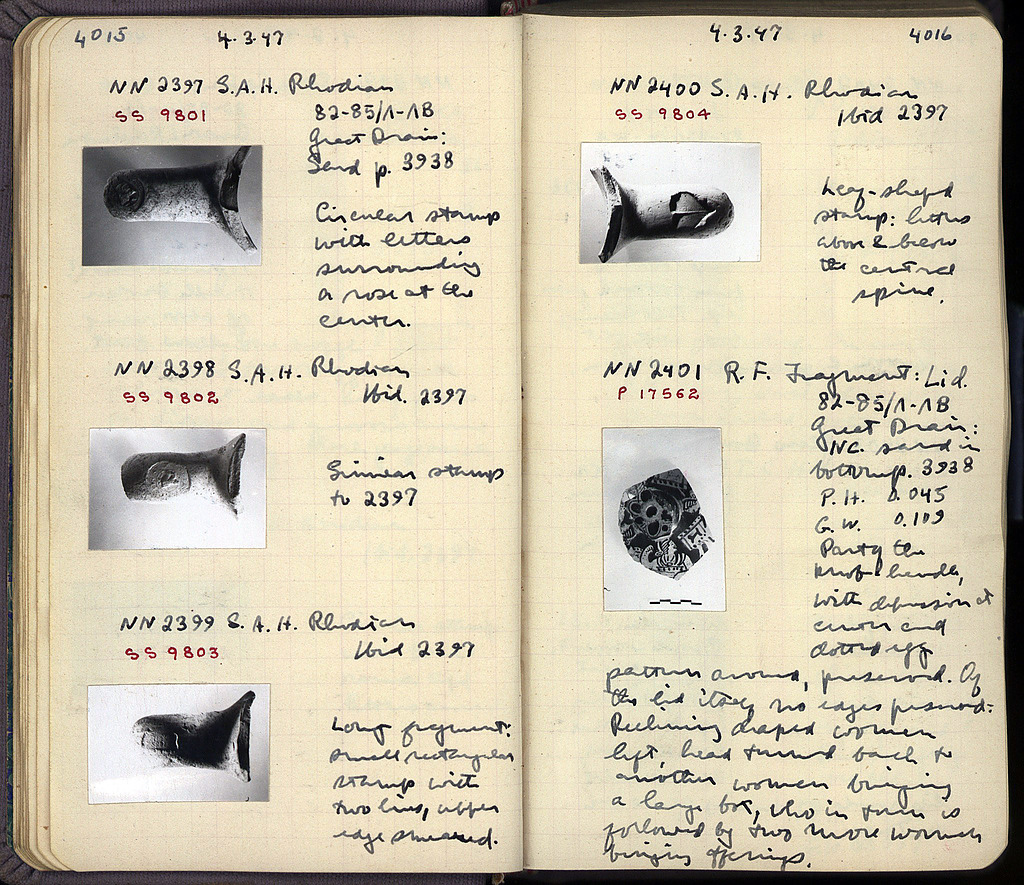 4015 4.3.47
NN 2397 S.A.H. Rhodian
SS 9801
82-85/Λ-ΛΒ
Great Drain:
Sand p. 3938
Circular stamp
with letters
surrounding
a rose at the
center.
NN 2398 S.A.H. Rhodian
SS 9802
Ibid. 2397
Similar stamp
to 2397
NN 2399 S.A.H. Rhodian
SS 9803
Ibid 2397
Long fragment:
small rectangular
stamp with
two lines, upper
edge smeared.
4.3.47 4016
NN 2400 S.A.H. Rhodian
SS 9804
Ibid 2397
Leaf-shaped
stamp: letters
above & below
the central
spine.
NN 2401 R.F. Fragment: Lid.
P 17562
82-85/Λ-ΛΒ
Great Drain:
NC. sand in
bottom p. 3938
P.H. 0.045
G.W. 0.109
Part of the
knob-handle,
with depression at
center and
dotted egg
pattern around, preserved. Of
the lid itself no edges preserved:
Reclining draped women
left, head turned back to
another women bringing
a large box, who in turn is
followed by two more women
bringing offerings.